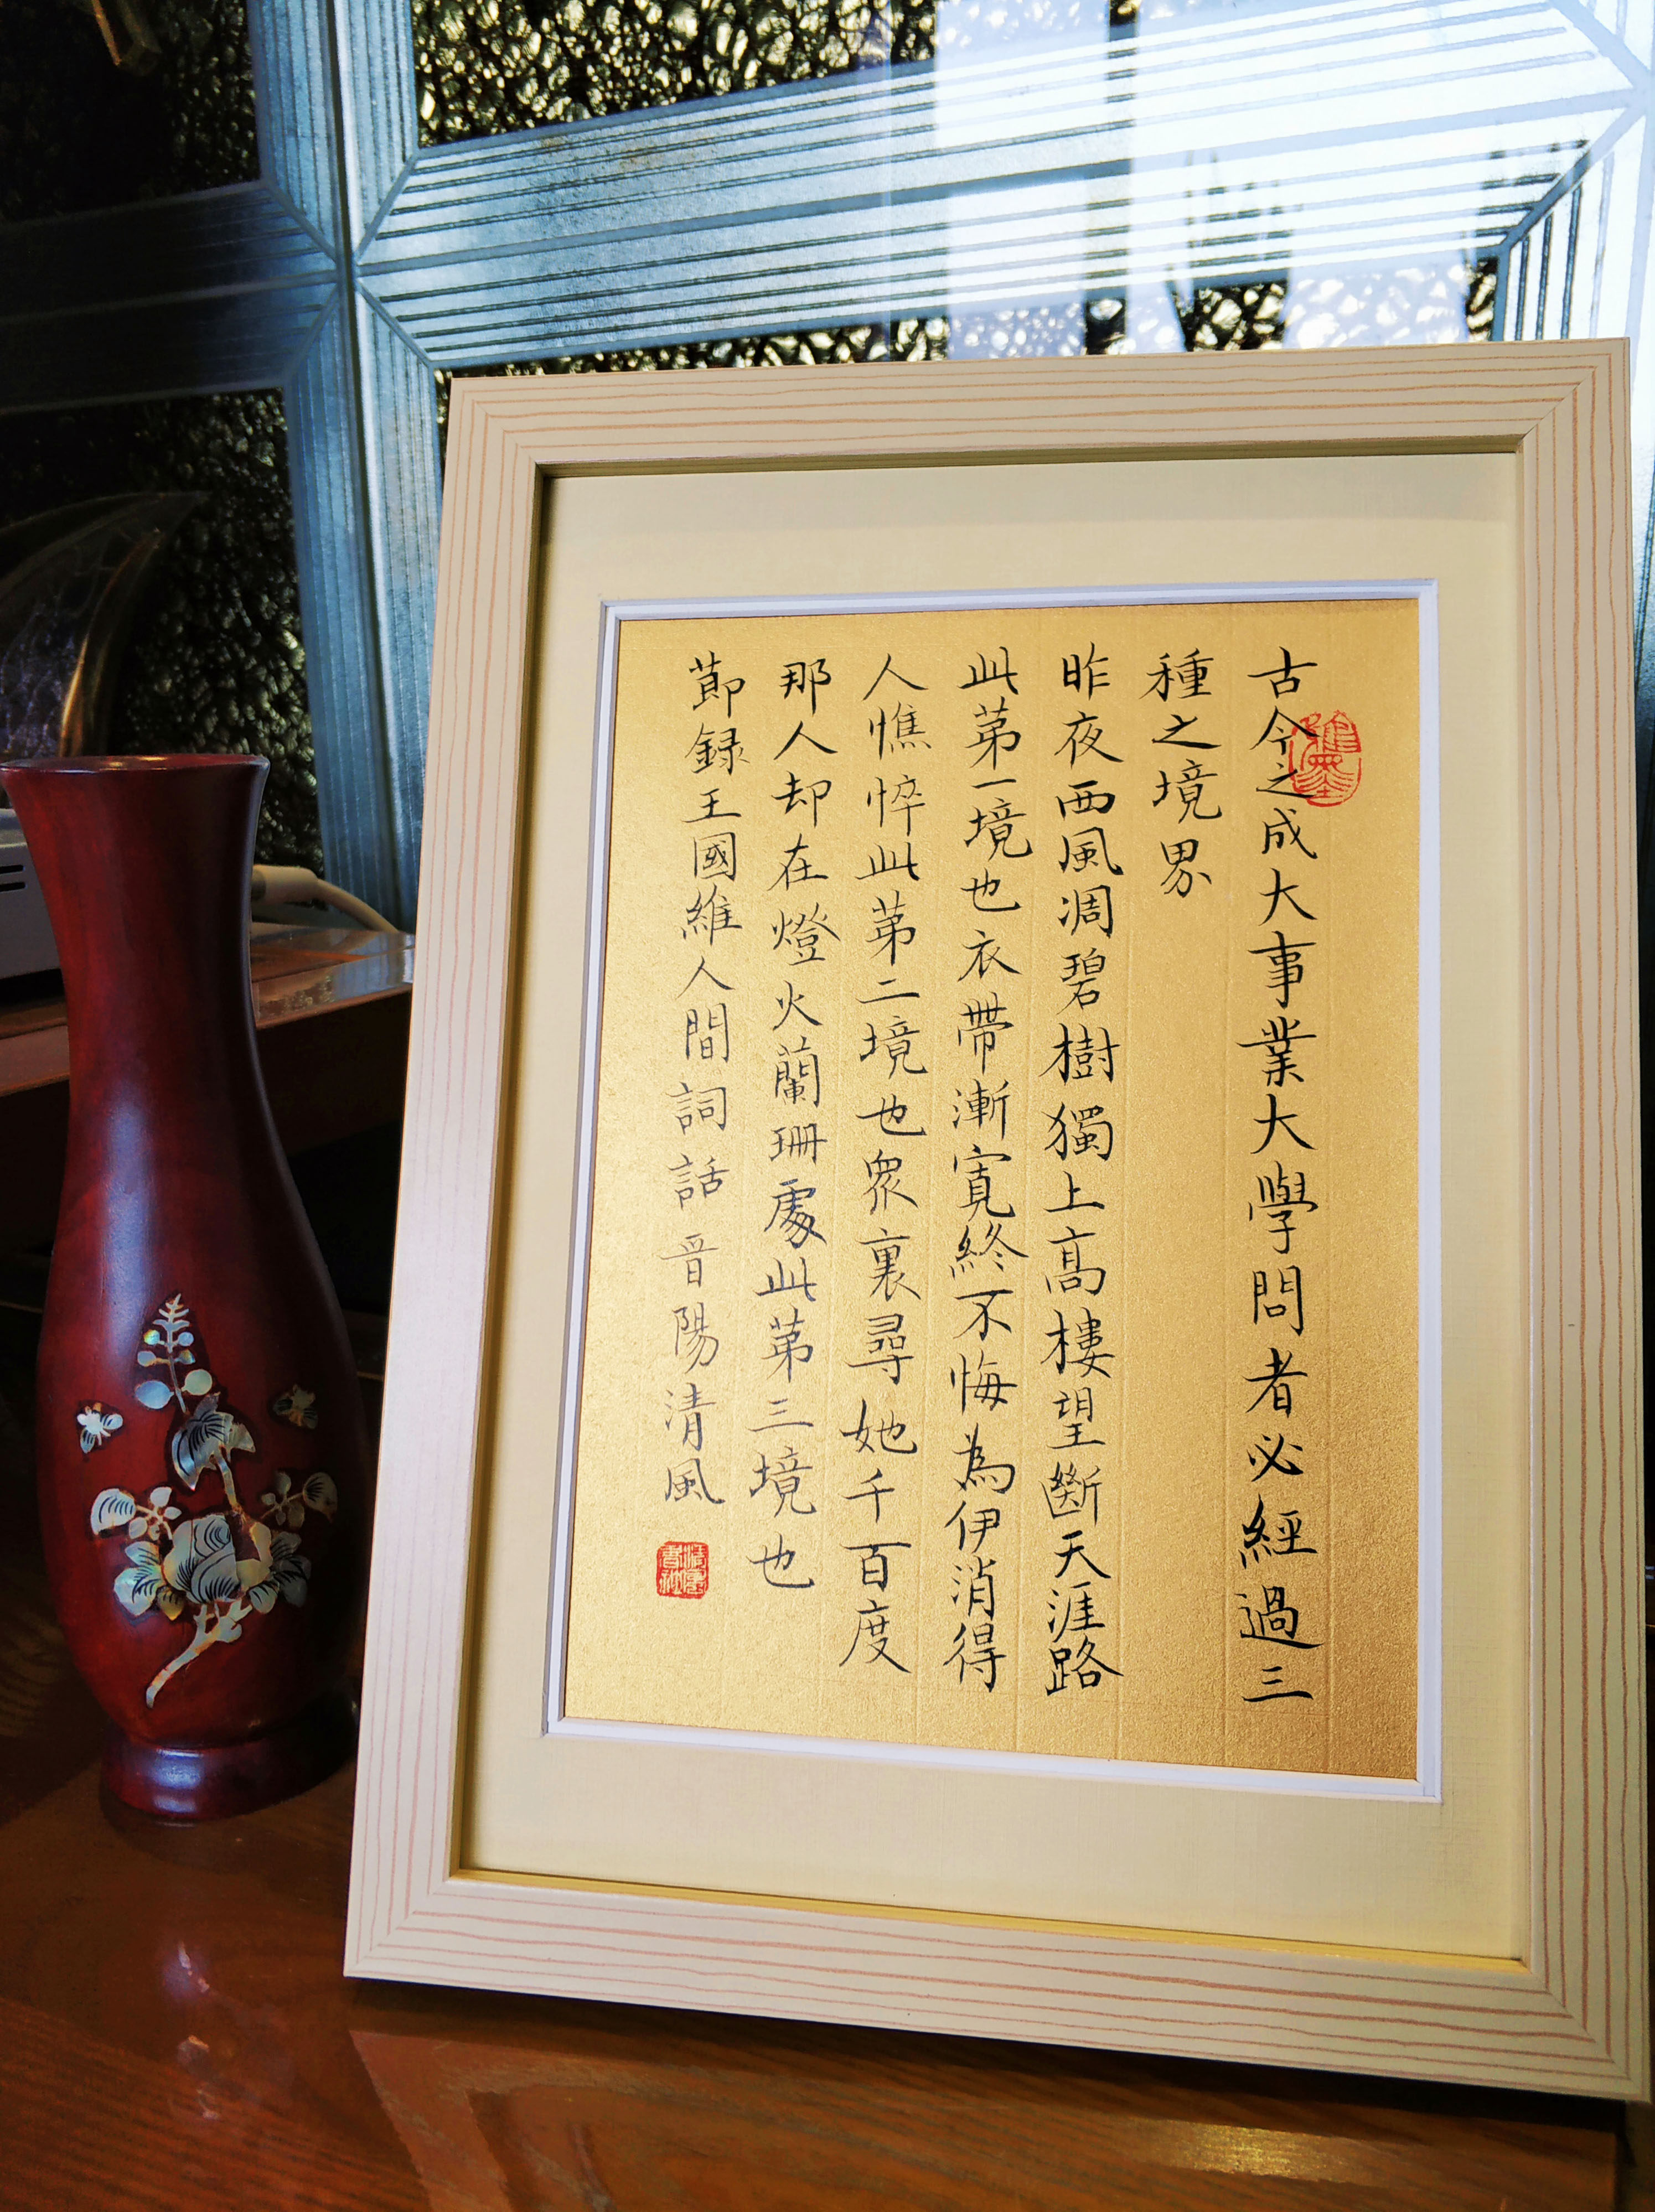 古今之成大事業大學問者必經過三
種之境界
昨夜西風凋碧樹獨上高樓望斷天涯路
此第一境也衣帶漸寬終不悔為伊消得
人憔悴此第二境也眾裏尋她千百度
那人却在燈火蘭珊處此第三境也
節録王國維人間詞話晉陽清風